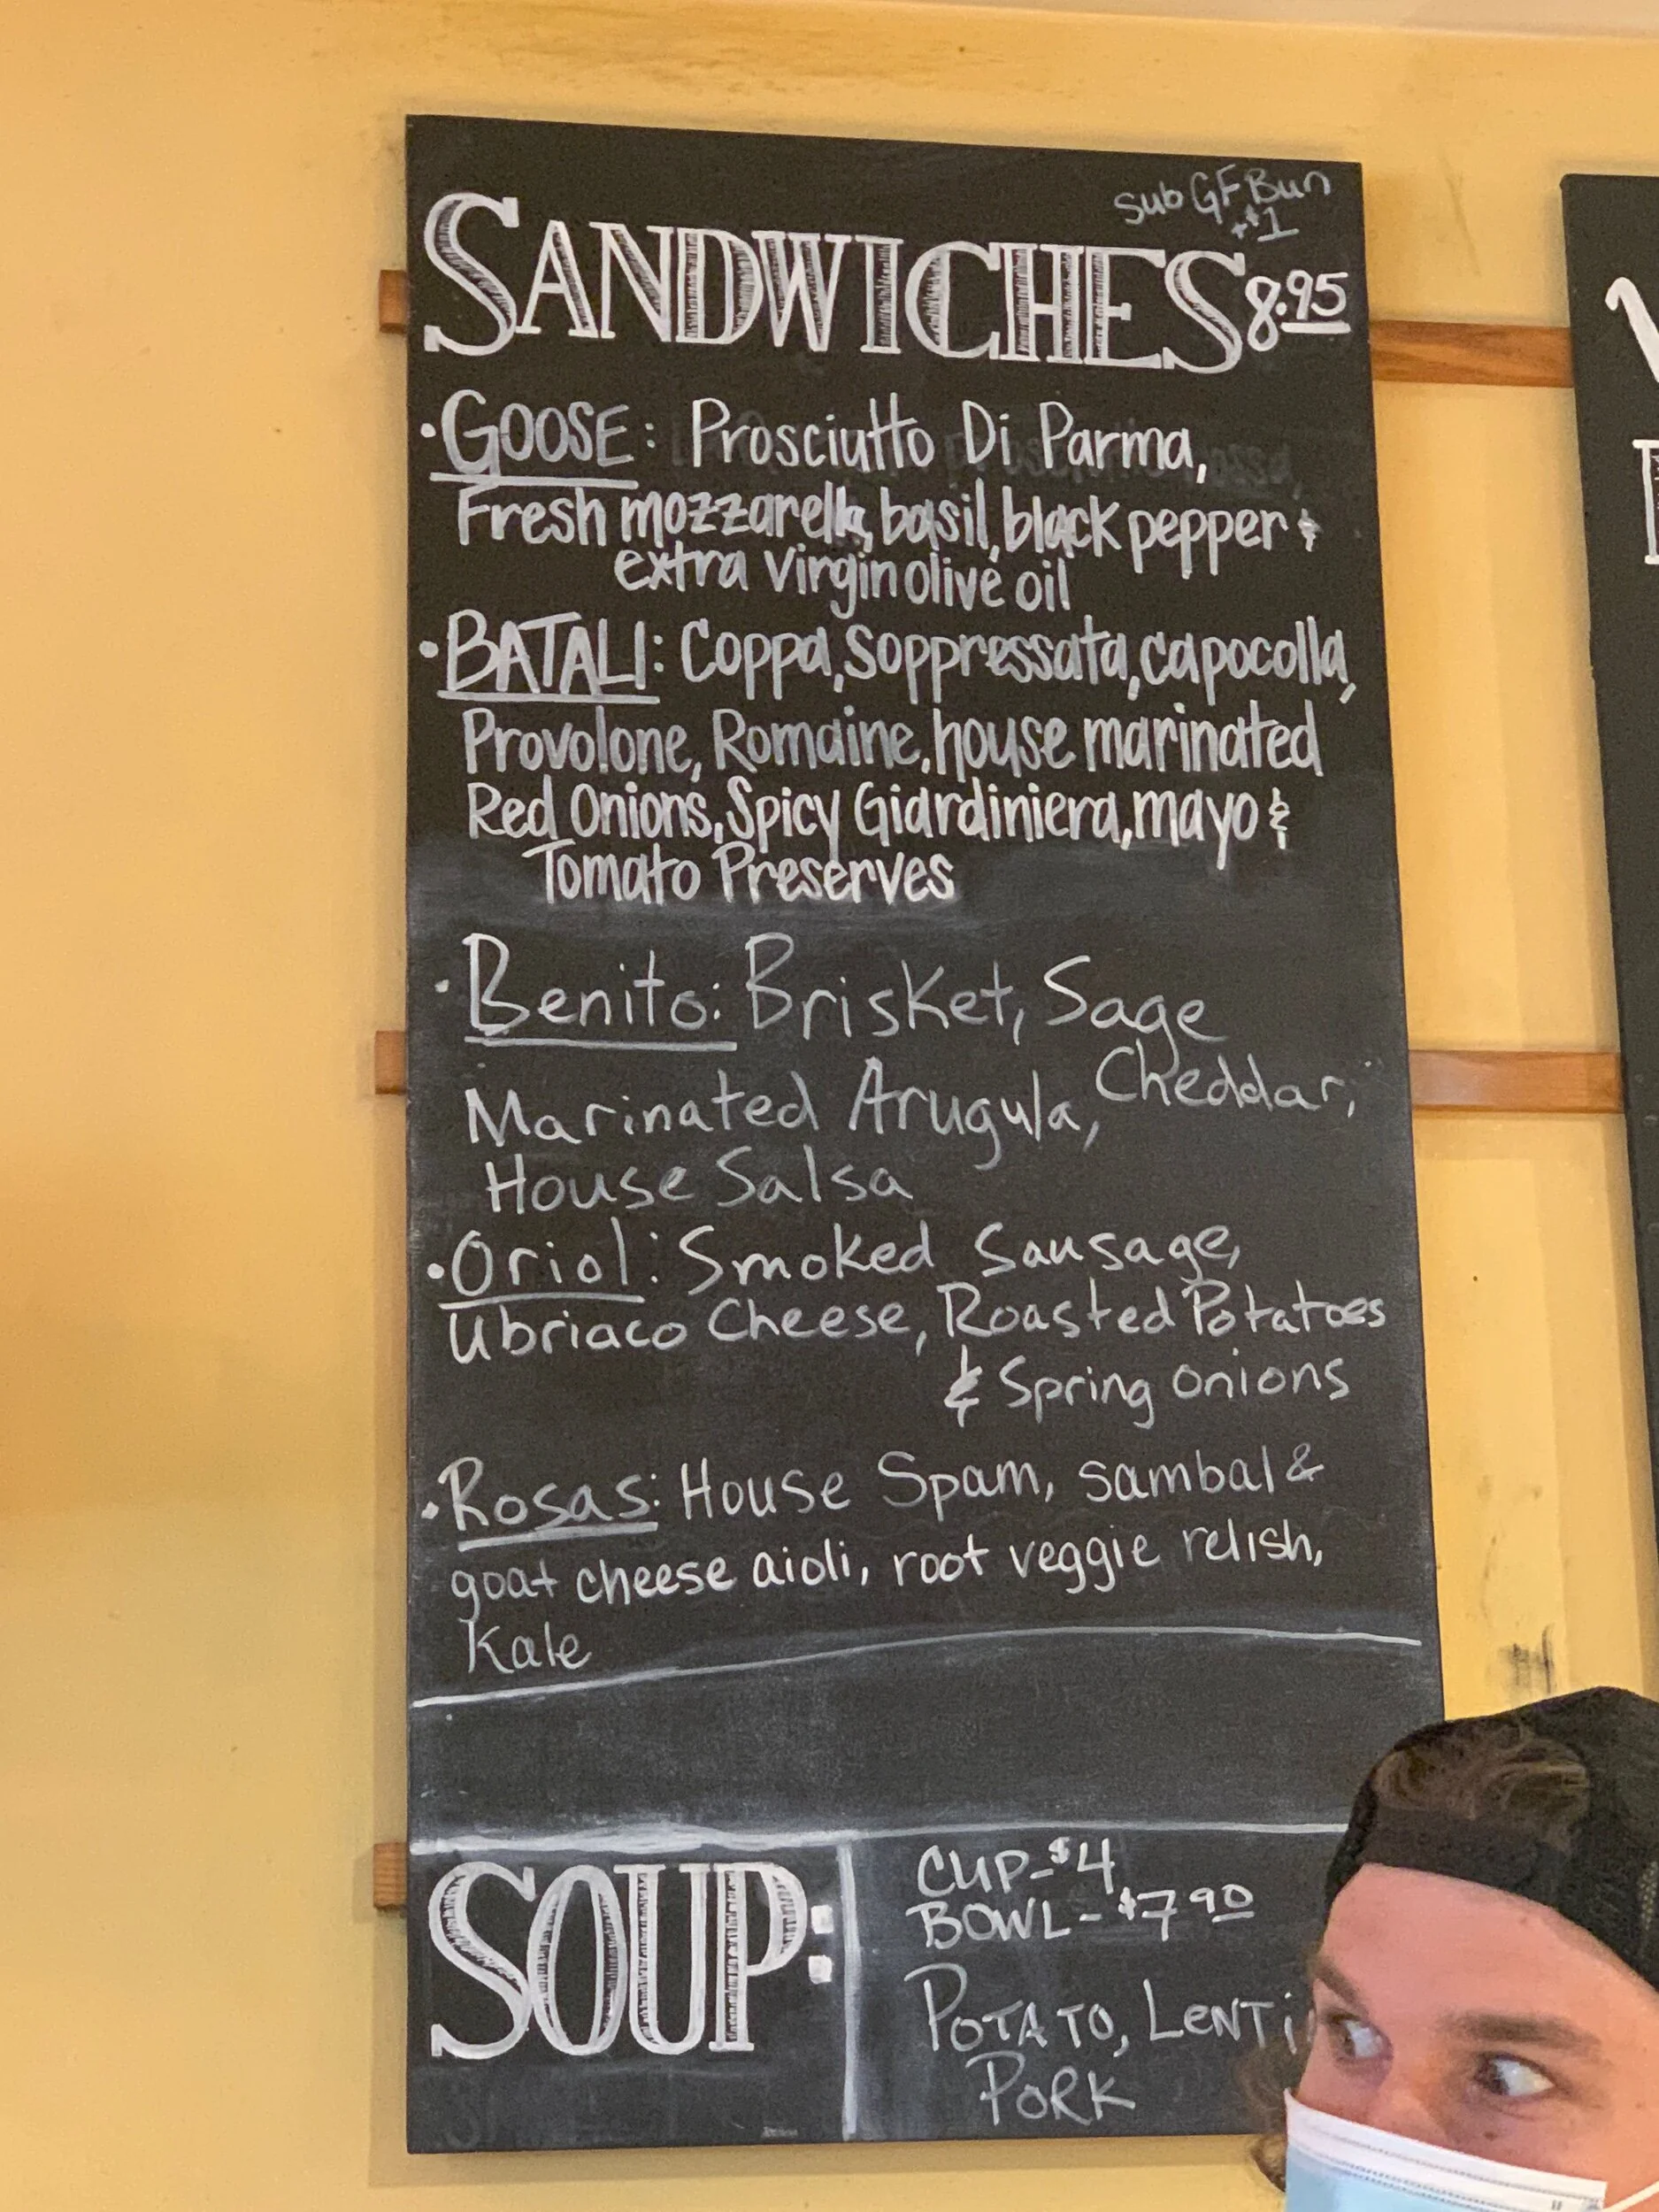 Sub GF Bun
+$1
SANDWICHES 8.95
· GOOSE: Prosciutto Di Parma,
Fresh mozzarella, basil, black pepper &
extra virgin olive oil
· BATALI: Coppa, Soppressata, capocolla,
Provolone, Romaine, house marinated
Red Onions, Spicy Giardiniera, mayo &
Tomato Preserves
· Benito: Brisket, Sage
Cheddar,
Marinated Arugula,
House Salsa
· Oriol: Smoked Sausage,
Ubriaco Cheese, Roasted Potatoes
& Spring onions
· Rosas: House Spam, sambal &
goat cheese aioli, root veggie relish,
Kale
SOUP:
CUP-$4
BOWL-$7.90
POTATO,
PORK